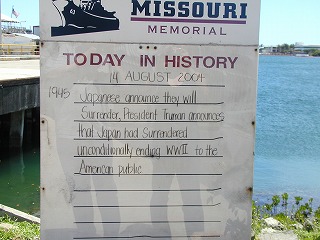 MISSOURI
MEMORIAL
TODAY IN HISTORY
14 AUGUST 2004
1945 Japanese announce they will
Surrender, President Truman announces
that Japan had Surrendered
unconditionally ending WWII to the
American public